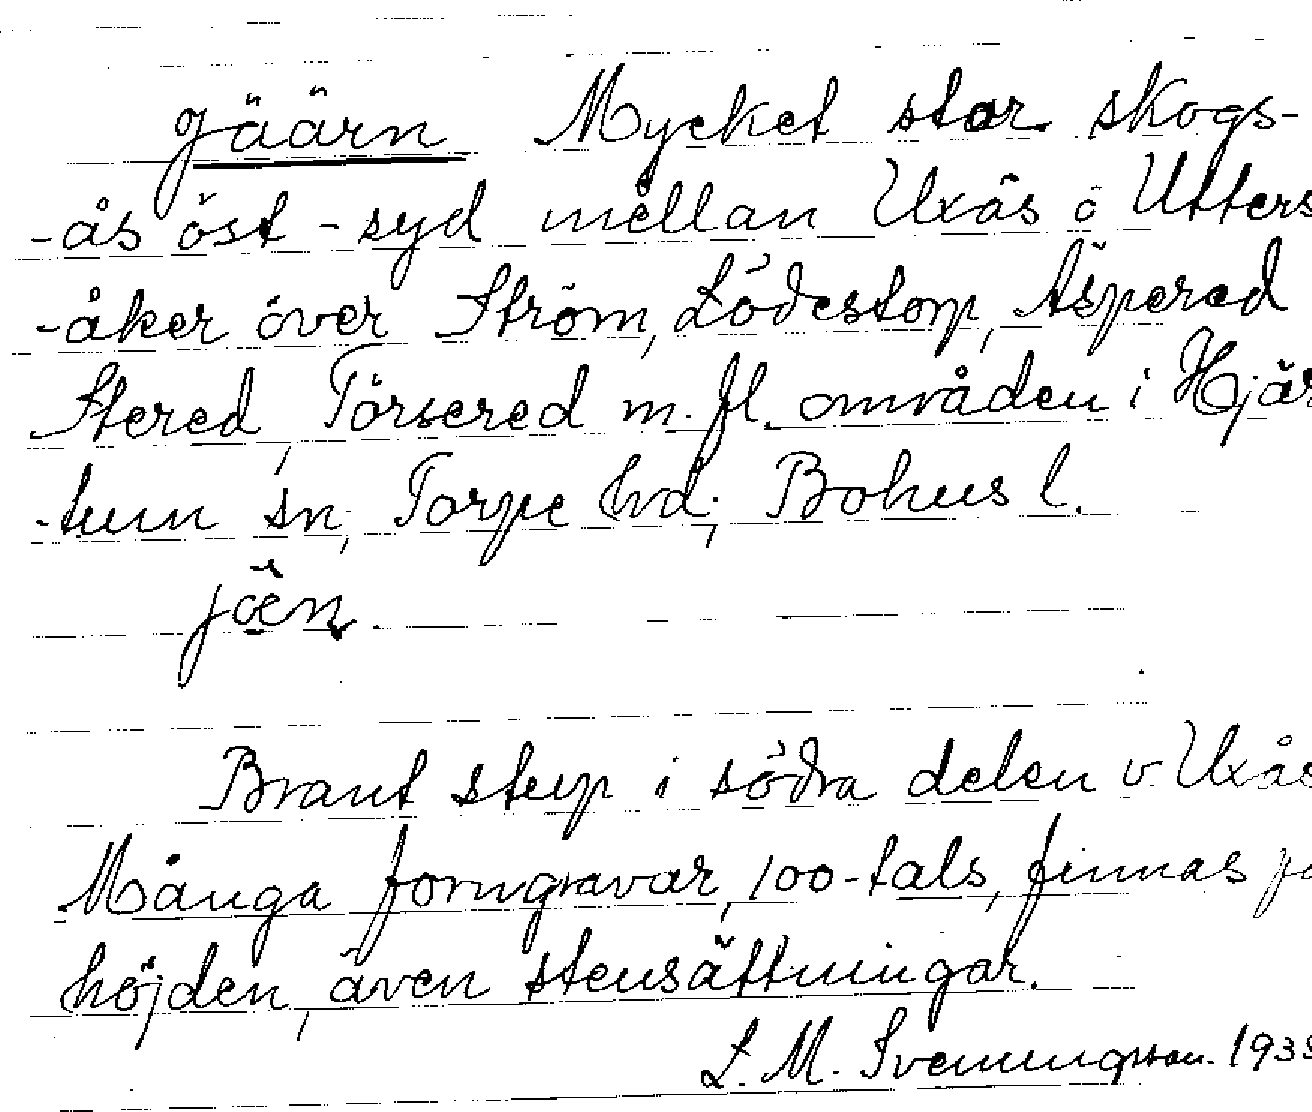 gäärn Mycket stor skogs-
-ås öst-syd mellan Uxås o Utters
-åker över Ström, Lödestorp, Äspered
Stered, Torsered m. fl. områden i Hjär
-tum sn, Torpe hd; Bohus l.
jäen
Brant stup i södra delen v Uxås
Många forngravar, 100-tals, finnas på
höjden, även stensättningar.
L. M. Svenungsson. 193